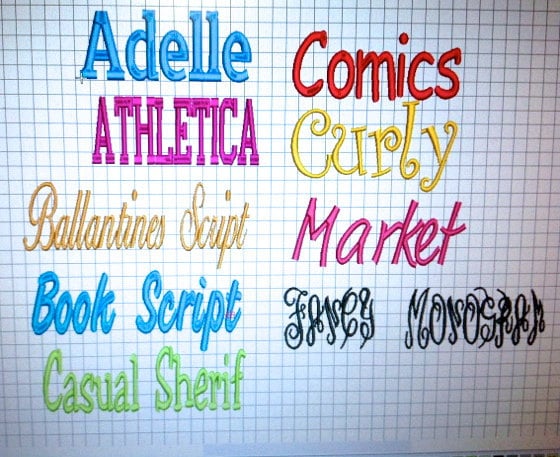 Adelle
ATHLETICA
Ballantines Script
Book Script
Casual Sherif
Comics
Curly
Market
FANCY MONOGRAM